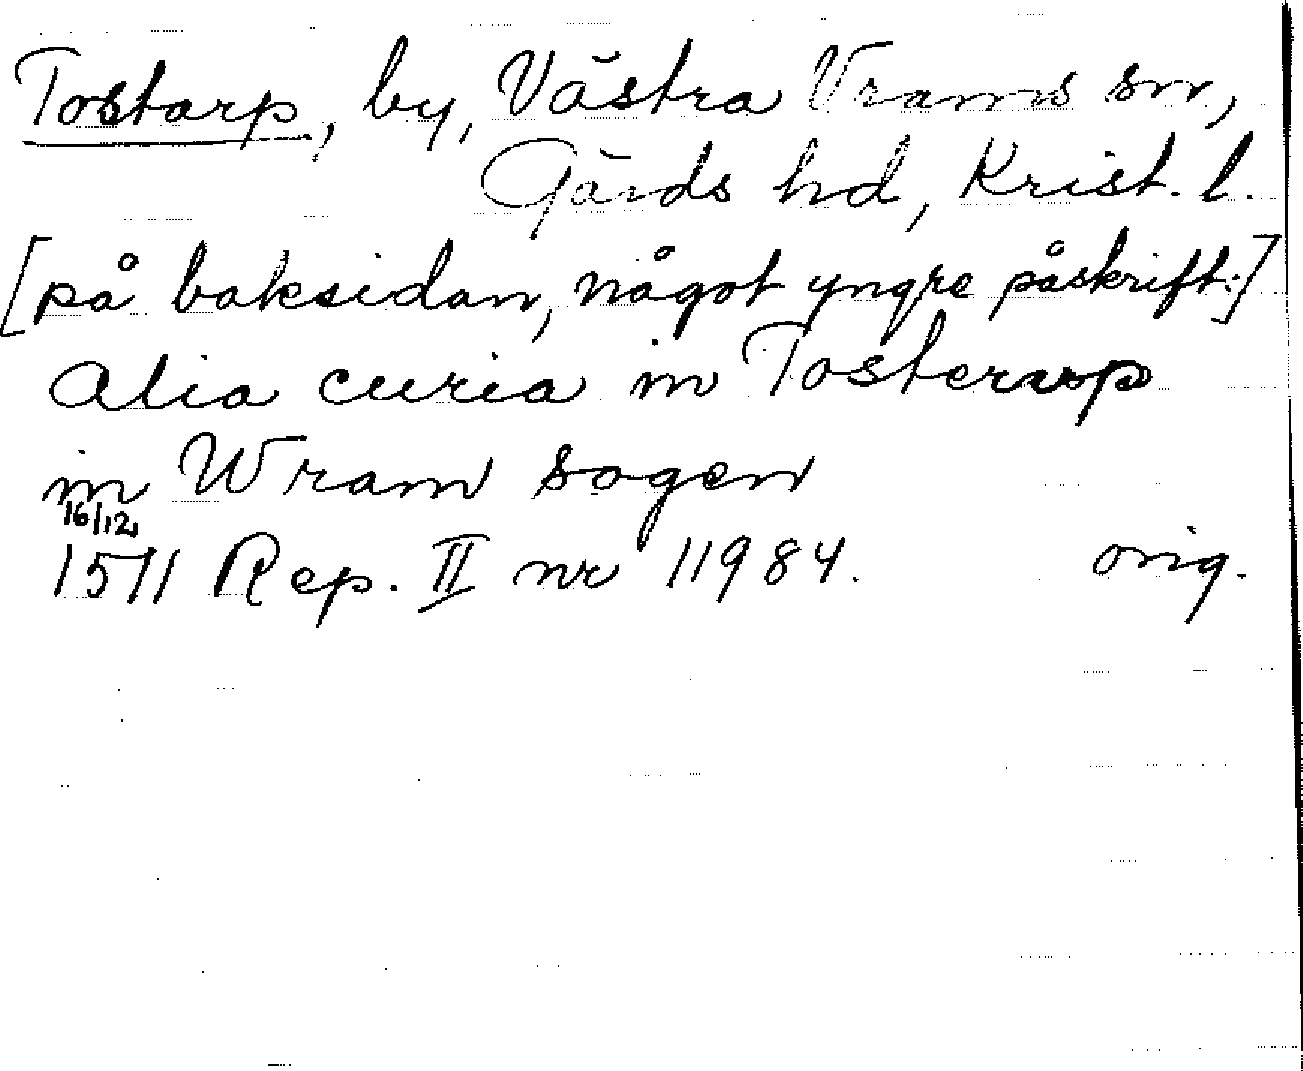 Tostarp, by, Västra Vrams sn,
Gärds hd, Krist. l.
[på baksidan, något yngre påskrift:]
Alia curia in Tosterup
in Wram sogen
16/12
1511 Rep. II nr 11984. orig.